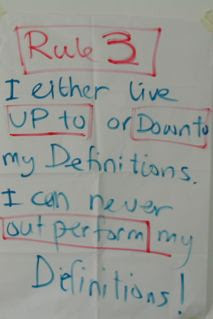 Rule 3
I either live
UP to or Down to
my Definitions.
I can never
out perform my
Definitions!